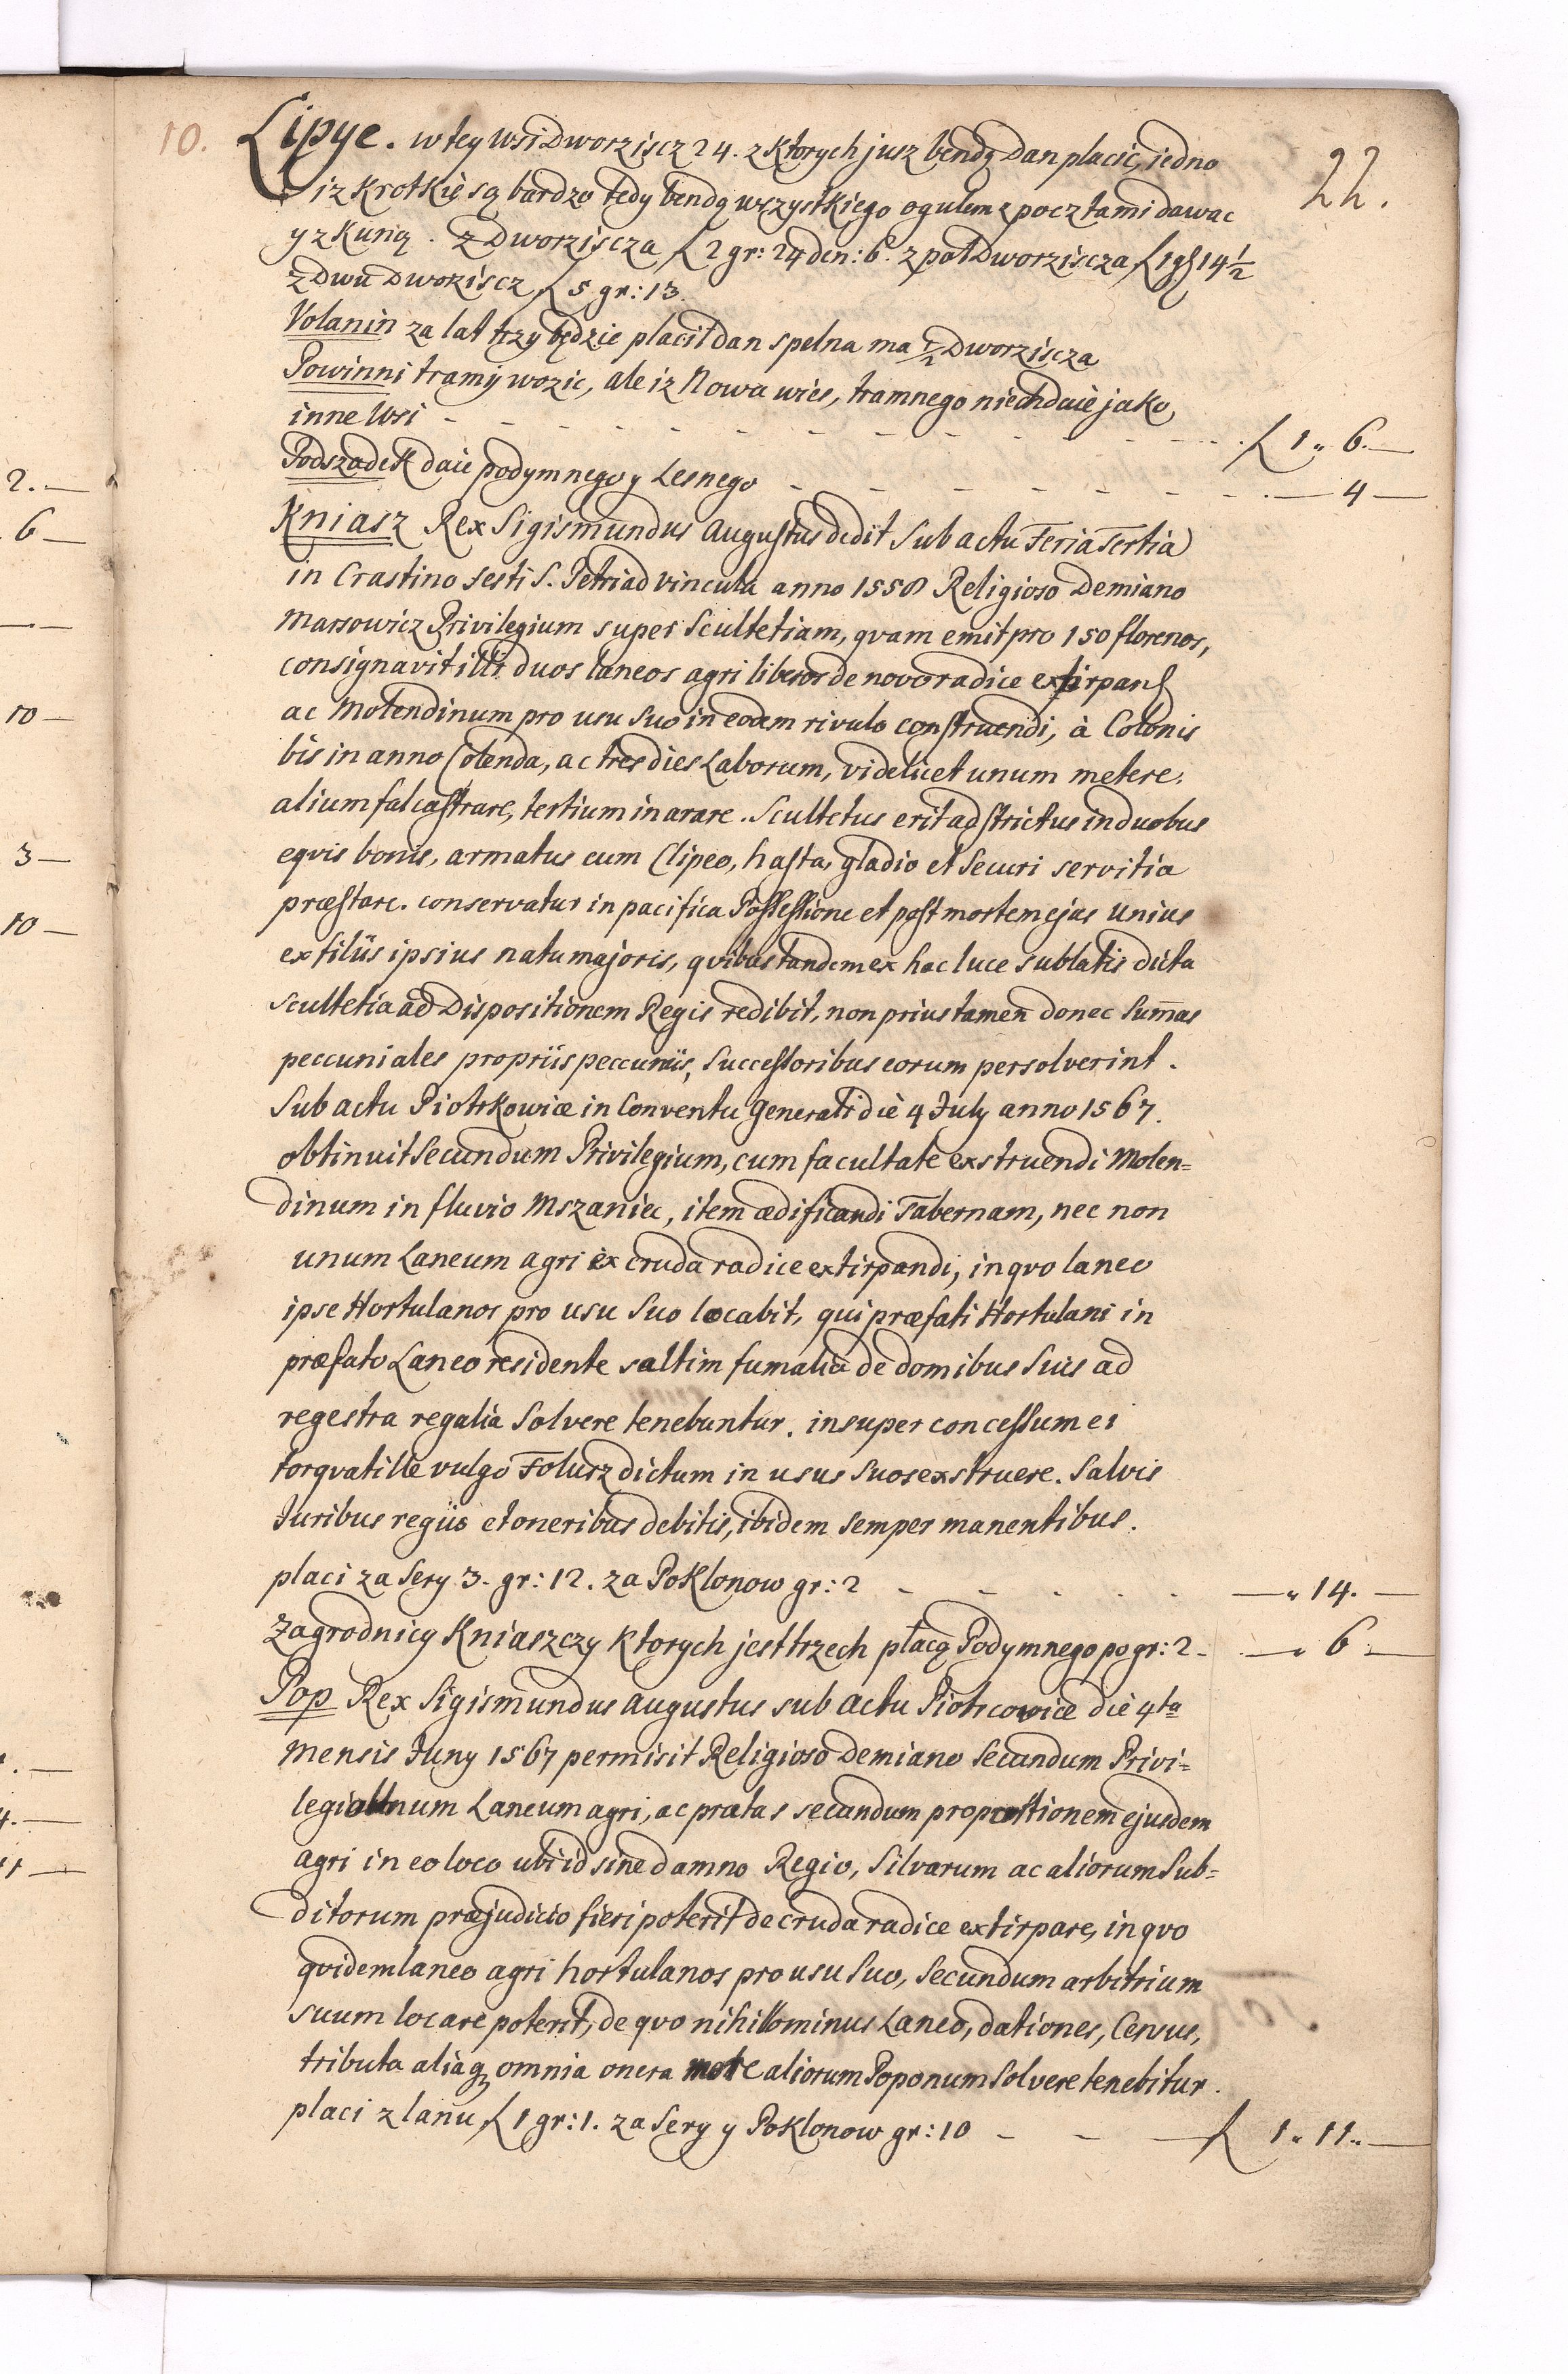 10.
22.
Lipye. w tey wsi Dworziscz 24. z ktorych jusz bendą Dan placic, jedno
iz krotkie są bardzo tedy bendą wszystkiego ogulem z pocztami dawac
y z kuną. z Dworziscza ƒ 2 gr: 24 den: 6. z poł Dworziscza ƒ 1 gr 14 1/2
z Dwu Dworziscz ƒ 5 gr: 13.
Volanin za lat trzy będzie placił dan spelna ma 1/2 Dworziscza
Powinni tramy wozic, ale iz Nowa wies, tramnego niech daie jako
inne wsi - - - - - - - - - - - ƒ 1 „ 6. —
Podszadek daie podymnego y Lesnego - - - - - - - — 4 —
Kniasz Rex Sigismundus Augustus dedit sub actu Feria Tertia
in Crastino festi S. Petri ad vincula anno 1558 Religioso Demiano
Marsowicz Privilegium super Scultetiam, qvam emit pro 150 florenos,
consignavit illi duos laneos agri liberos de novo radice extirpand
ac Molendinum pro usu suo in eodem rivulo construendi, à Colonis
bis in anno Colenda, ac tres dies Laborum, videlicet unum metere,
alium falcastrare, tertium inarare. Scultetus erit adstrictus in duobus
eqvis bonis, armatus cum Clipeo, hasta, gladio et securi servitia
præstare. conservatur in pacifica Possessione et post mortem ejus unius
ex filiis ipsius natu majoris, qvibus tandem ex hac luce sublatis dicta
scultetia ad Dispositionem Regis redibit, non prius tamen donec summas
peccuniales propriis peccuniis, successoribus eorum persolverint.
Sub actu Piotrkowiæ in Conventu generali die 4 July anno 1567.
obtinuit secundum Privilegium, cum facultate exstruendi Molen=
dinum in fluvio Mszaniec, item ædificandi Tabernam, nec non
unum Laneum agri ex cruda radice extirpandi, in qvo laneo
ipse Hortulanos pro usu suo locabit, qui præfati Hortulani in
præfato Laneo residente saltim fumalia de domibus suis ad
regestra regalia solvere tenebuntur. insuper concessum ei
torqvatille vulgo Folusz dictum in usus suos exstruere. Salvis
Juribus regiis et oneribus debitis, ibidem semper manentibus.
placi za sery 3. gr: 12. za Poklonow gr: 2 - - - - - - — „ 14. —
Zagrodnicy Kniaszczy ktorych jest trzech płacą Podymnego po gr: 2 - — „ 6 —
Pop Rex Sigismundus Augustus sub actu Piotrcoviæ die 4ta
Mensis Juny 1567 permisit Religioso Demiano secundum Privi=
legium Laneum agri, ac pratas secundum proportionem ejusdem
agri in eo loco ubi id sine damno Regio, silvarum ac aliorum sub=
ditorum præjudicio fieri poterit de cruda radice extirpare, in qvo
qvidem laneo agri hortulanos pro usu suo, secundum arbitrium
suum locare poterit, de qvo nihillominus Laneo, dationes, Census,
tributa aliaq; omnia onera more aliorum Poponum solvere tenebitur.
placi z lanu ƒ 1 gr: 1. za sery y Poklonow gr: 10 - - — ƒ 1 „ 11 „ —
2. —
6 —
— —
10 —
3 —
10 —
. —
4. —
11 —